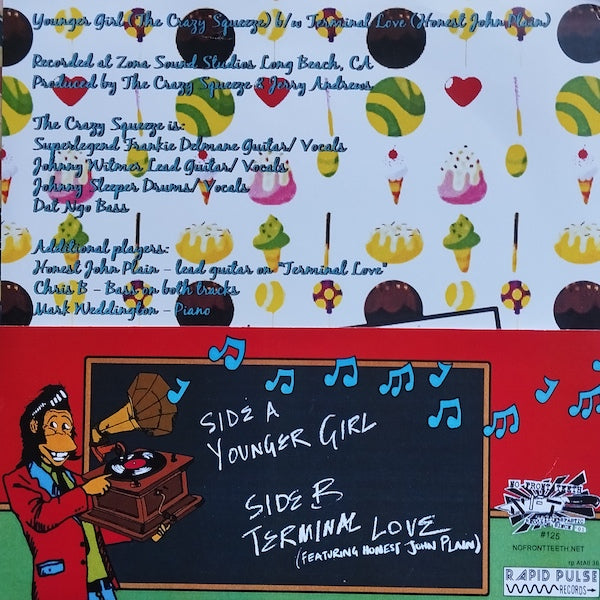 Younger Girl (The Crazy Squeeze) b/w Terminal Love (Honest John Plain)
Recorded at Zona Sound Studios Long Beach, CA
Produced by The Crazy Squeeze & Jerry Andrews
The Crazy Squeeze is:
Superlegend Frankie Delmane Guitar/ Vocals
Johnny Witmer Lead Guitar/ Vocals
Johnny Sleeper Drums/ Vocals
Dat Ngo Bass
Additional players:
Honest John Plain - lead guitar on "Terminal Love"
Chris B - Bass on both tracks
Mark Weddington - Piano
SIDE A
YOUNGER GIRL
SIDE B
TERMINAL LOVE
(FEATURING HONEST JOHN PLAIN)
NO FRONT TEETH
#125
NOFRONTTEETH.NET
rp AtAll 36
RAPID PULSE
RECORDS